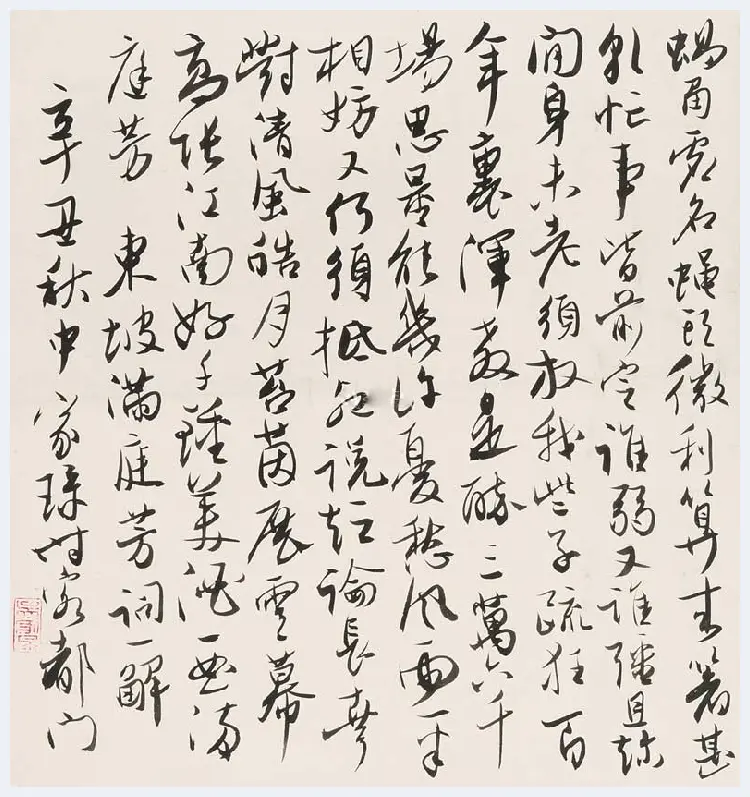 蝸角虛名蠅頭微利算來着甚
乾忙事皆前定誰弱又誰強且趁
閒身未老須放我些子疏狂百
年裏渾教是醉三萬六千
場思量能幾許憂愁風雨一半
相妨又何須抵死說短論長幸
對清風皓月苔茵展雲幕
高張江南好千鍾美酒一曲滿
庭芳 東坡滿庭芳詞一解
辛丑秋中家時客都門